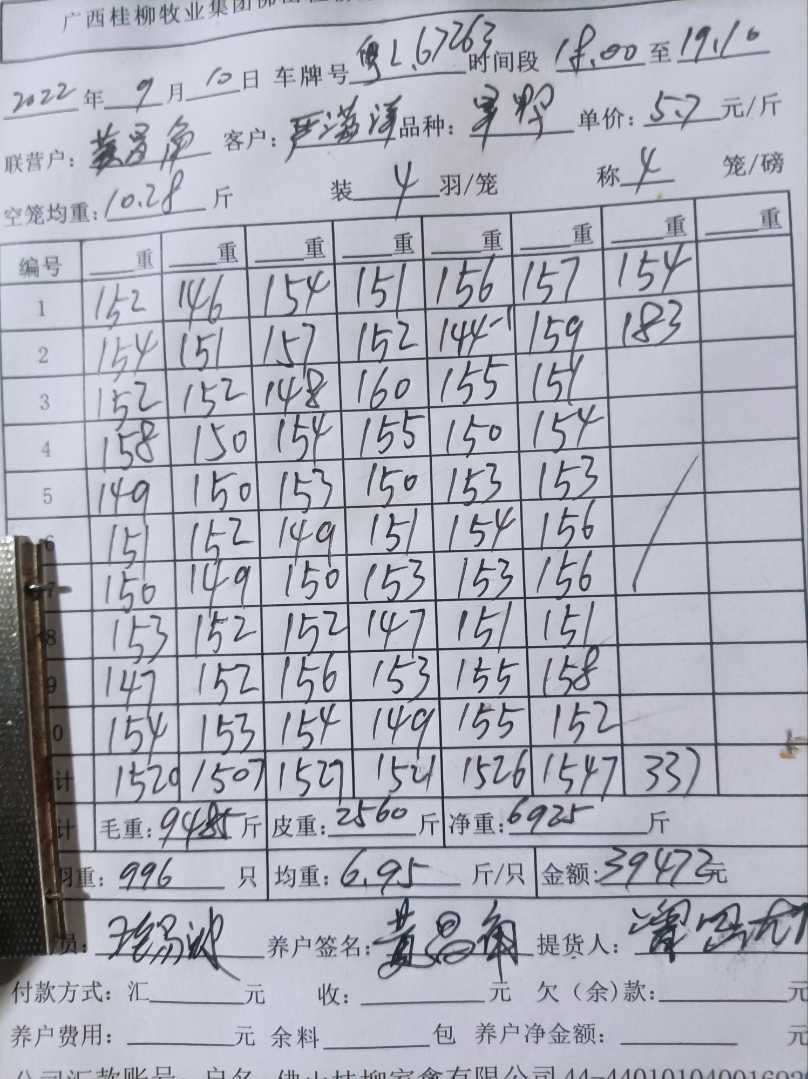 广西桂柳牧业集团佛山
2022 年 9 月 10 日 车牌号 粤L.67263 时间段 18.00 至 19.10
联营户: 黄昌角 客户: 品种: 单价: 5.7 元/斤
空笼均重: 10.28 斤 装 4 羽/笼 称 4 笼/磅
编号 重 重 重 重 重 重 重 重
1 152 146 154 151 156 157 154
2 154 151 157 152 144-1 159 183
3 152 152 148 160 155 151
4 158 150 154 155 150 154
5 149 150 153 150 153 153
6 151 152 149 151 154 156
7 150 149 150 153 153 156
8 153 152 152 147 151 151
9 147 152 156 153 155 158
0 154 153 154 149 155 152
计 1520 1507 1527 1521 1526 1547 337
计 毛重: 9485 斤 皮重: 2560 斤 净重: 6925 斤
羽重: 996 只 均重: 6.95 斤/只 金额: 39472 元
员: 养户签名: 黄昌角 提货人:
付款方式: 汇 元 收: 元 欠(余)款: 元
养户费用: 元 余料 包 养户净金额: 元
公司汇款账号 户名 佛山桂柳家禽有限公司 44-44010104001692